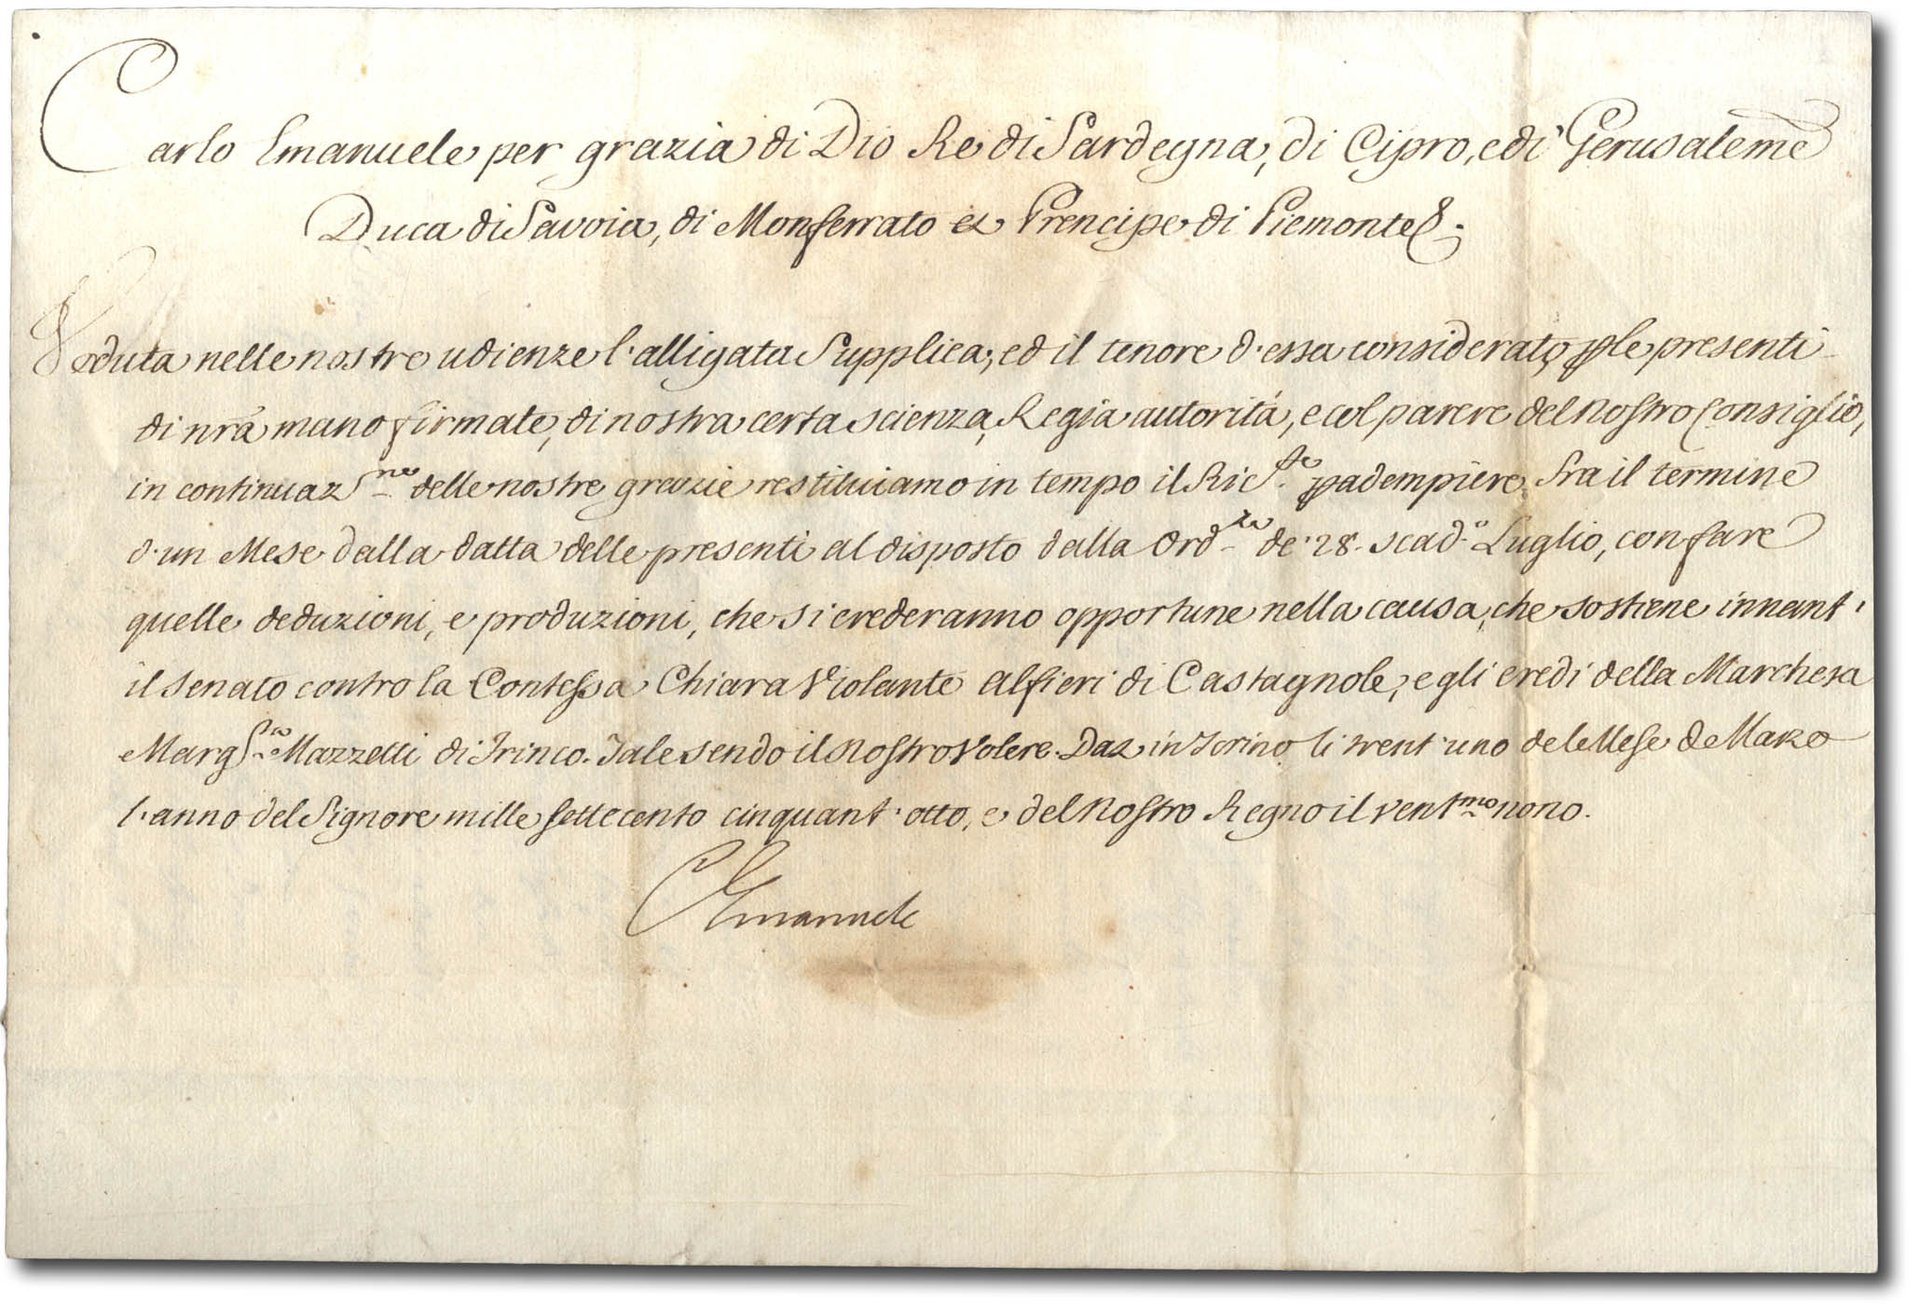 Carlo Emanuele per grazia di Dio Re di Sardegna, di Cipro, e di Gerusaleme
Duca di Savoia, di Monferrato et Prencipe di Piemonte &.;
Veduta nelle nostre udienze l'alligata Supplica, ed il tenore d'essa considerato, p le presenti
di nrã mano firmate, di nostra certa scienza, Regia autoritá, e col parere del Nostro Consiglio,
in continuaz.ne delle nostre grazie restituiamo in tempo il Ric.te p adempiere fra il termine
d'un Mese dalla datta delle presenti al disposto dalla Ord.za de' 28. scad.o Luglio, con fare
quelle deduzioni, e produzioni, che si crederanno opportune nella causa, che sostiene innant'
il Senato contro la Contessa Chiara Violante Alfieri di Castagnole, e gli eredi della Marchesa
Marg.ta Mazzetti di Frinco. Tale sendo il Nostro Volere. Dat in Torino li trent'uno del Mese de Marzo
l'anno del Signore mille settecento cinquant'otto, e del Nostro Regno il vent.mo nono.
C Emanuele